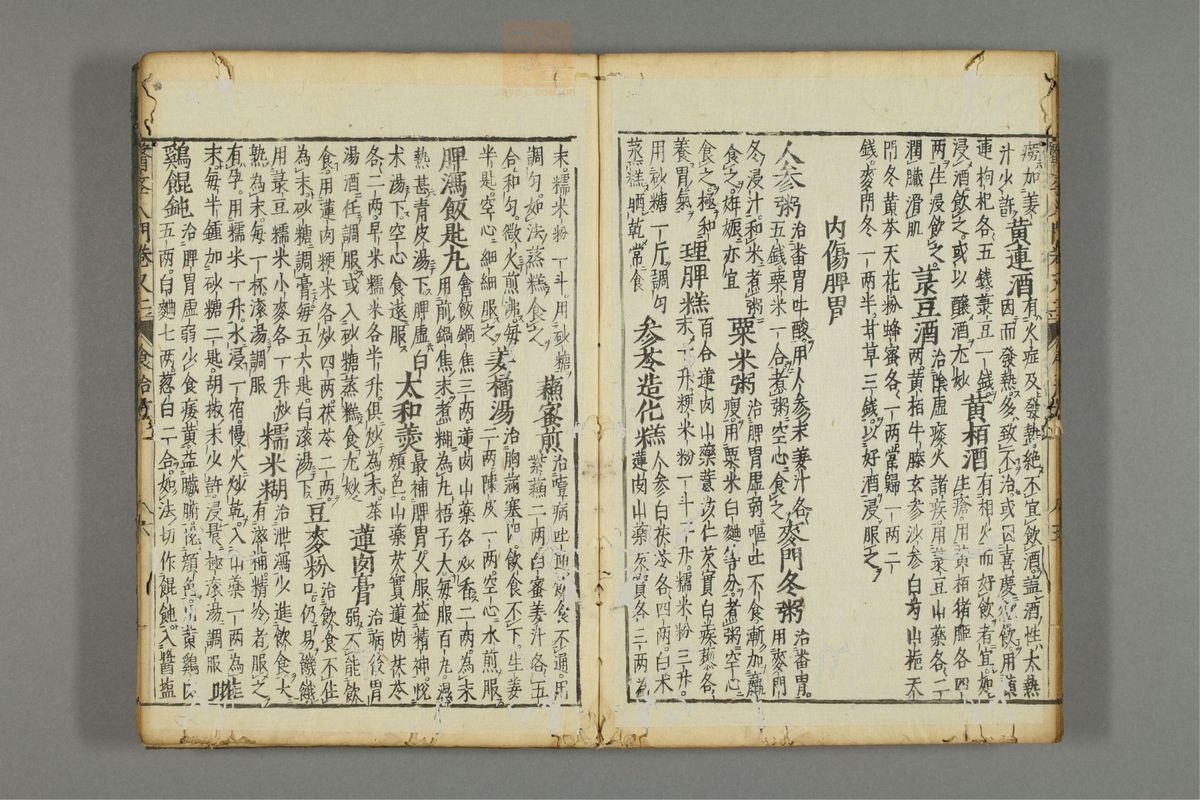 痰加姜
汁少許 黃連酒 有火症及發熱絕不宜飲酒蓋酒性大熱
因而發熱多致不治或因喜慶
連枸杞各五錢菉豆一錢
浸酒飲之或以釀酒尤妙 黃栢酒 有相火而好飲者宜
生瘡用黃栢猪胆各四
兩生浸飲之 菉豆酒 治陰虛痰火諸疾用菉豆山藥各二
兩黃栢牛膝玄參沙參白芍山梔天
潤臟滑肌
門冬黃芩天花粉蜂蜜各一兩當歸一兩二
錢麥門冬一兩半甘草三錢以好酒浸服之
內傷脾胃
人參粥 治番胃吐酸用人參末姜汁各
五錢粟米一合煮粥空心食之 麥門冬粥 治番胃
用麥門
冬浸汁和米煮粥
食之妊娠亦宜 粟米粥 治脾胃虛弱嘔吐不食漸加羸
瘦用粟米白麯等分煮粥空心
食之極和
養胃氣 理脾糕 百合蓮肉山藥薏苡仁芡實白蒺藜各
末一升粳米粉一斗二升糯米粉三升
用砂糖一斤調勻
蒸糕晒乾常食 參苓造化糕 人參白茯苓各四兩白朮
蓮肉山藥芡實各三兩為
末糯米粉一斗用砂糖
調勻如法蒸糕食之 蘇蜜煎 治噎病吐逆飲食不通用
紫蘇二兩白蜜姜汁各五
合和勻微火煎沸每
半匙空心細細服之 姜橘湯 治胸滿塞悶飲食不下生姜
二兩陳皮一兩空心水煎服
脾瀉飯匙丸 會飯鍋焦三兩蓮肉山藥各炒香二兩為末
用前鍋焦末煮糊為丸梧子大每服百丸濕
熱甚青皮湯下脾虛白
朮湯下空心食遠服 太和羹 最補脾胃久服益精神悅
顏色山藥芡實蓮肉茯苓
各二兩早米糯米各半升俱炒為末茶
湯酒任調服或入砂糖蒸糕食尤妙 蓮肉膏 治病後胃
弱不能飲
食用蓮肉粳米各炒四兩茯苓二兩
為末砂糖調膏每五六匙白滾湯下 豆麥粉 治飲食不住
口仍易饑餓
用菉豆糯米小麥各一升炒
熟為末每一杯滾湯調服 糯米糊 治泄瀉少進飲食大
有滋補精冷者服之
有孕用糯米一升水浸一宿慢火炒乾入山藥一兩為
末每半鍾加砂糖二匙胡椒末少許浸晨極滾湯調服
雞餛飩 治脾胃虛弱少食痿黃益臟腑悅顏色用黃雞肉
五兩白麯七兩葱白二合如法切作餛飩入醬鹽